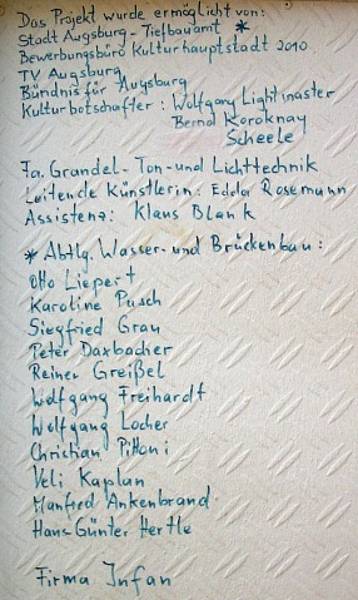 Das Projekt wurde ermöglicht von:
Stadt Augsburg - Tiefbauamt *
Bewerbungsbüro Kulturhauptstadt 2010
TV Augsburg
Bündnis für Augsburg
Kulturbotschafter: Wolfgang Lightmaster
Bernd Koroknay
Scheele
Fa. Grandel - Ton- und Lichttechnik
Leitende Künstlerin: Edda Rosemann
Assistenz: Klaus Blank
* Abtlg. Wasser- und Brückenbau:
Otto Liepert
Karoline Pusch
Siegfried Grau
Peter Daxbacher
Reiner Greißel
Wolfgang Freihardt
Wolfgang Locher
Christian Pittoni
Veli Kaplan
Manfred Ankenbrand
Hans-Günter Hertle
Firma Infan